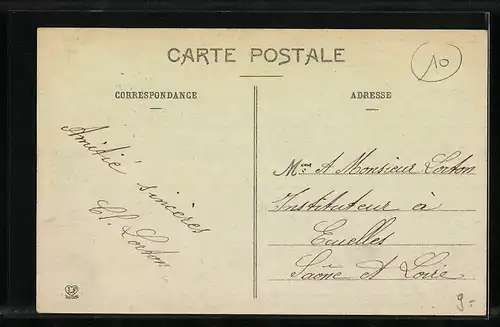 CARTE POSTALE
10
CORRESPONDANCE
ADRESSE
Amitié sincères
Cl. Lorton
Mme et Monsieur Lorton
Instituteur à
Ecuelles
Saône et Loire
9-